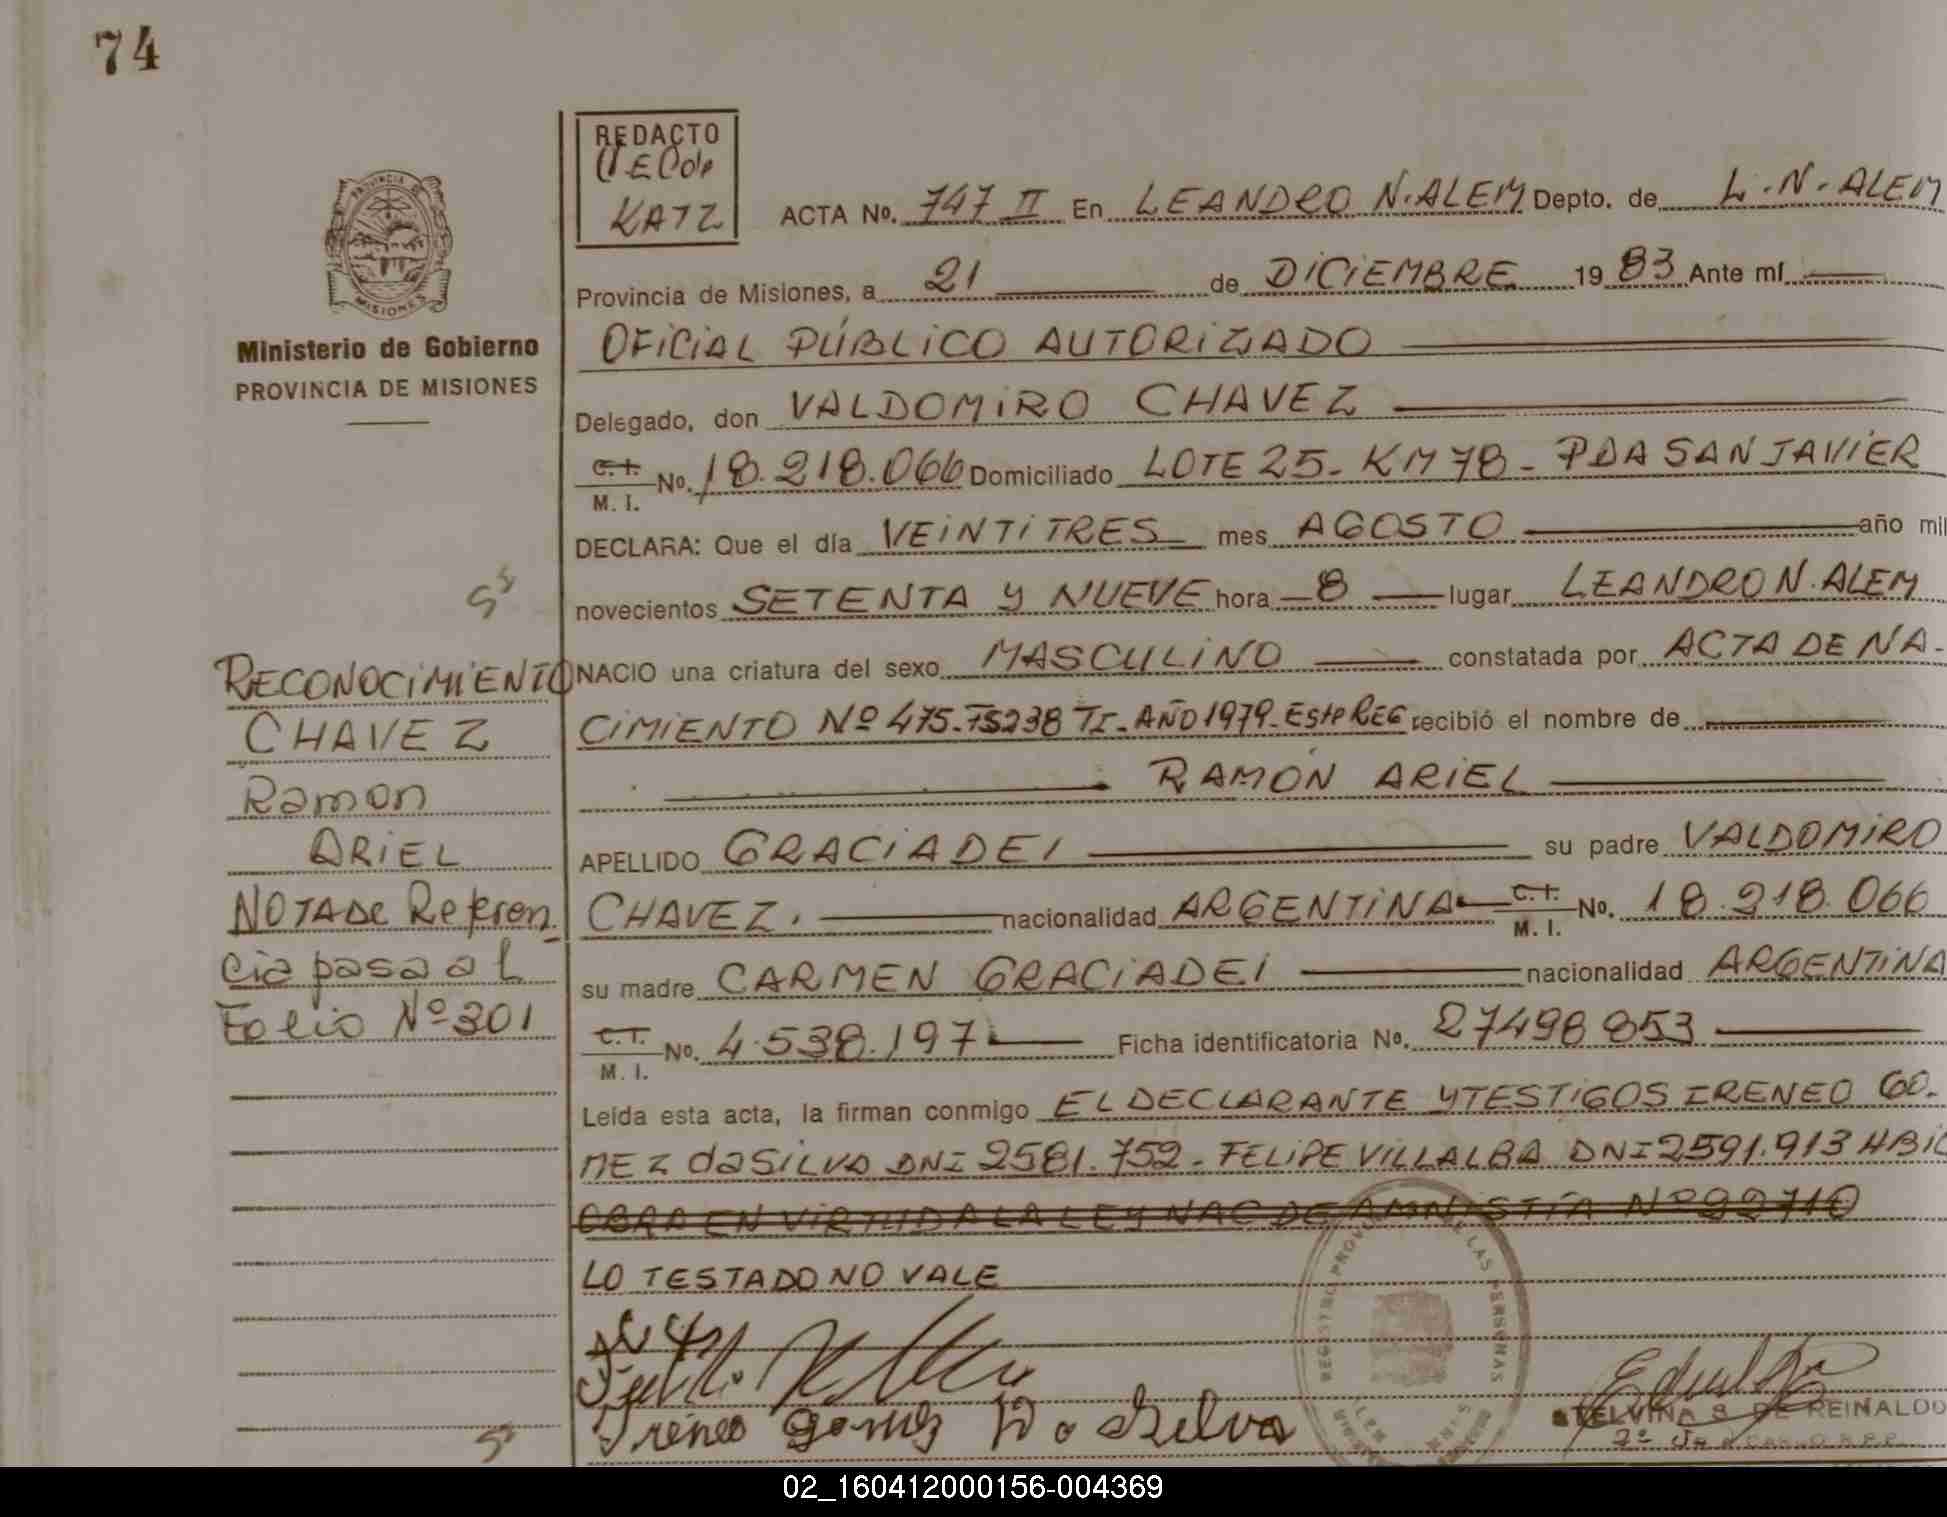 74
REDACTO
KATZ
ACTA No. 747 II En LEANDRO N. ALEM Depto. de L. N. ALEM
Provincia de Misiones, a 21 de DICIEMBRE 1983 Ante mí
OFICIAL PÚBLICO AUTORIZADO
Delegado, don VALDOMIRO CHAVEZ
C. I.
M. I. No. 18.218.066 Domiciliado LOTE 25 - KM 78 - PDA SAN JAVIER
DECLARA: Que el día VEINTITRES mes AGOSTO año mil
novecientos SETENTA Y NUEVE hora 8 lugar LEANDRO N. ALEM
NACIO una criatura del sexo MASCULINO constatada por ACTA DE NA-
CIMIENTO Nº 475-Fs238 TI- AÑO 1979- Este REG recibió el nombre de
RAMÓN ARIEL
APELLIDO GRACIADEI su padre VALDOMIRO
CHAVEZ. nacionalidad ARGENTINA C. I. M. I. No. 18.218.066
su madre CARMEN GRACIADEI nacionalidad ARGENTINA
C. I.
M. I. No. 4.538.197 Ficha identificatoria No. 27498853
Leída esta acta, la firman conmigo EL DECLARANTE Y TESTIGOS IRENEO GO-
MEZ da SILVA DNI 2581.752 - FELIPE VILLALBA DNI 2591.913
OBRA EN VIRTUD A LA LEY NAC DE AMNISTIA Nº 22710
LO TESTADO NO VALE
Ireneo Gomez Da Silva
REGISTRO PROV DE LAS PERSONAS
TELVINA S DE REINALDO
PROVINCIA DE
MISIONES
Ministerio de Gobierno
PROVINCIA DE MISIONES
RECONOCIMIENTO
CHAVEZ
Ramon
ARIEL
NOTA DE Referen
cia pasa al
Folio Nº 301
02_160412000156-004369